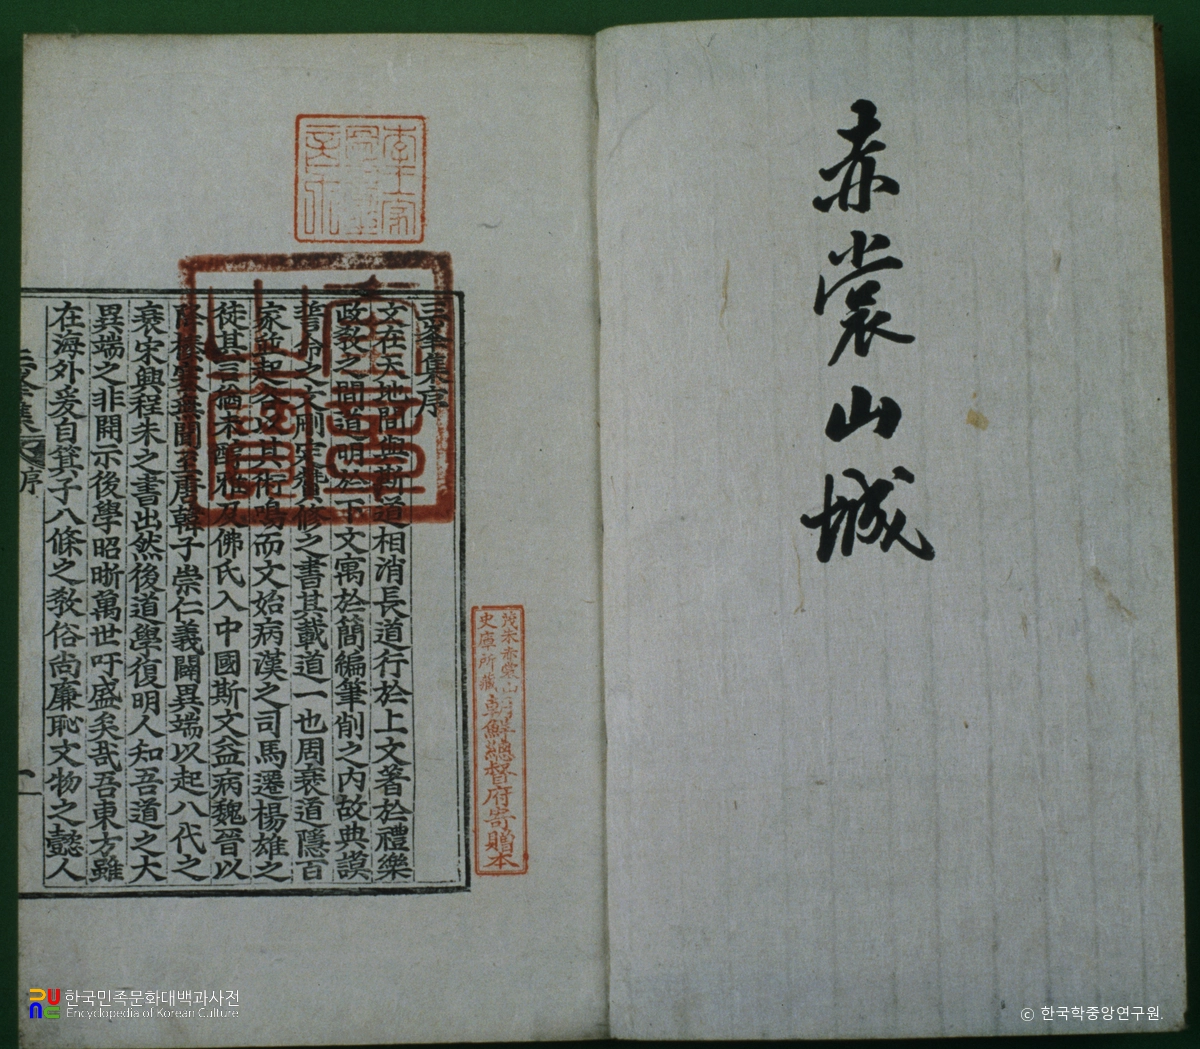 赤裳山城
三峯集序
文在天地間與斯道相消長道行於上文著於禮樂
政敎之間道明於下文寓於簡編筆削之內故典謨
誓命之文刪定贊修之書其載道一也周衰道隱百
家並起各以其術鳴而文始病漢之司馬遷楊雄之
徒其言猶未醇雅及佛氏入中國斯文益病魏晉以
降萎靡無聞至唐韓子崇仁義闢異端以起八代之
衰宋興程朱之書出然後道學復明人知吾道之大
異端之非開示後學昭晣萬世吁盛矣哉吾東方雖
在海外爰自箕子八條之敎俗尚廉恥文物之懿人
三峯集 序
一
李王家圖書之章
茂朱赤裳山
史庫所藏
朝鮮總督府寄贈本
한국민족문화대백과사전
Encyclopedia of Korean Culture
© 한국학중앙연구원.